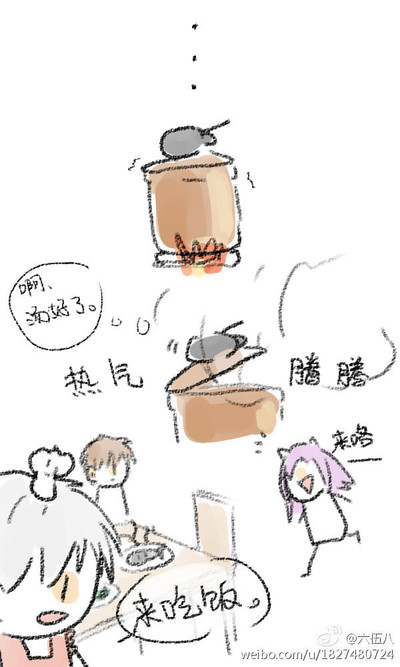 啊，
汤好了。
热气
腾腾
来咯
来吃饭。
@六伍八
weibo.com/u/1827480724